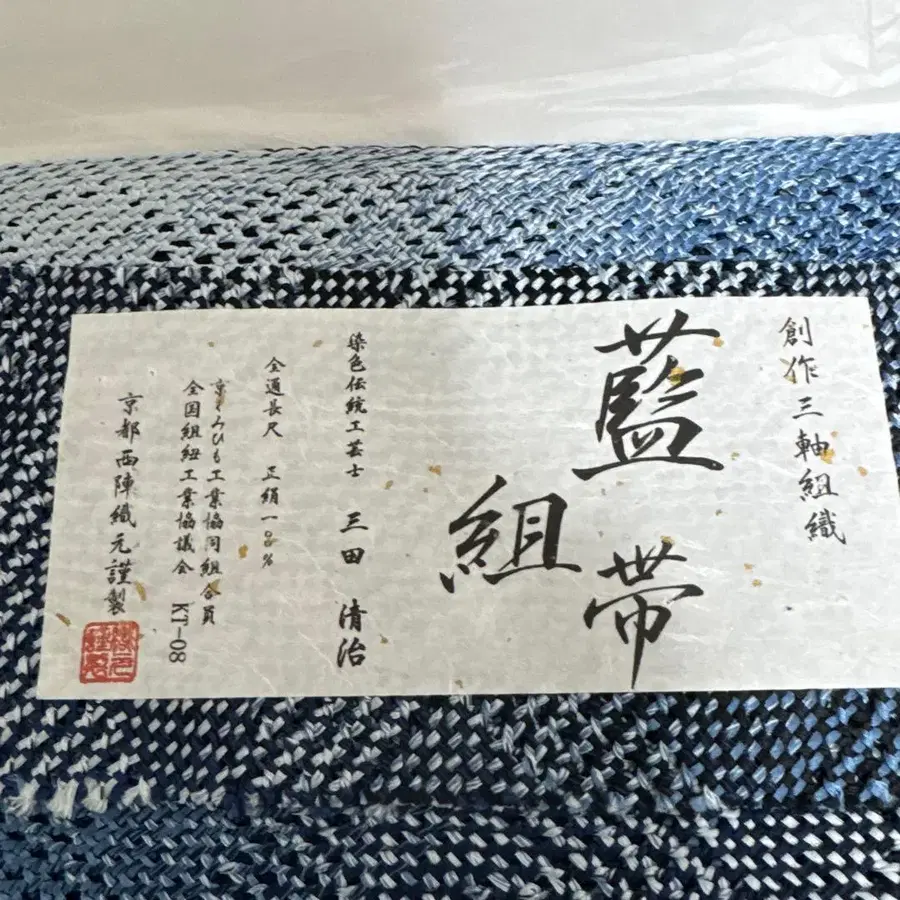 創作三軸組織
藍組帯
染色伝統工芸士 三田 清治
全通長尺 正絹一〇〇%
京くみひも工業協同組合員
全国組紐工業協議会 KT-08
京都西陣織元謹製